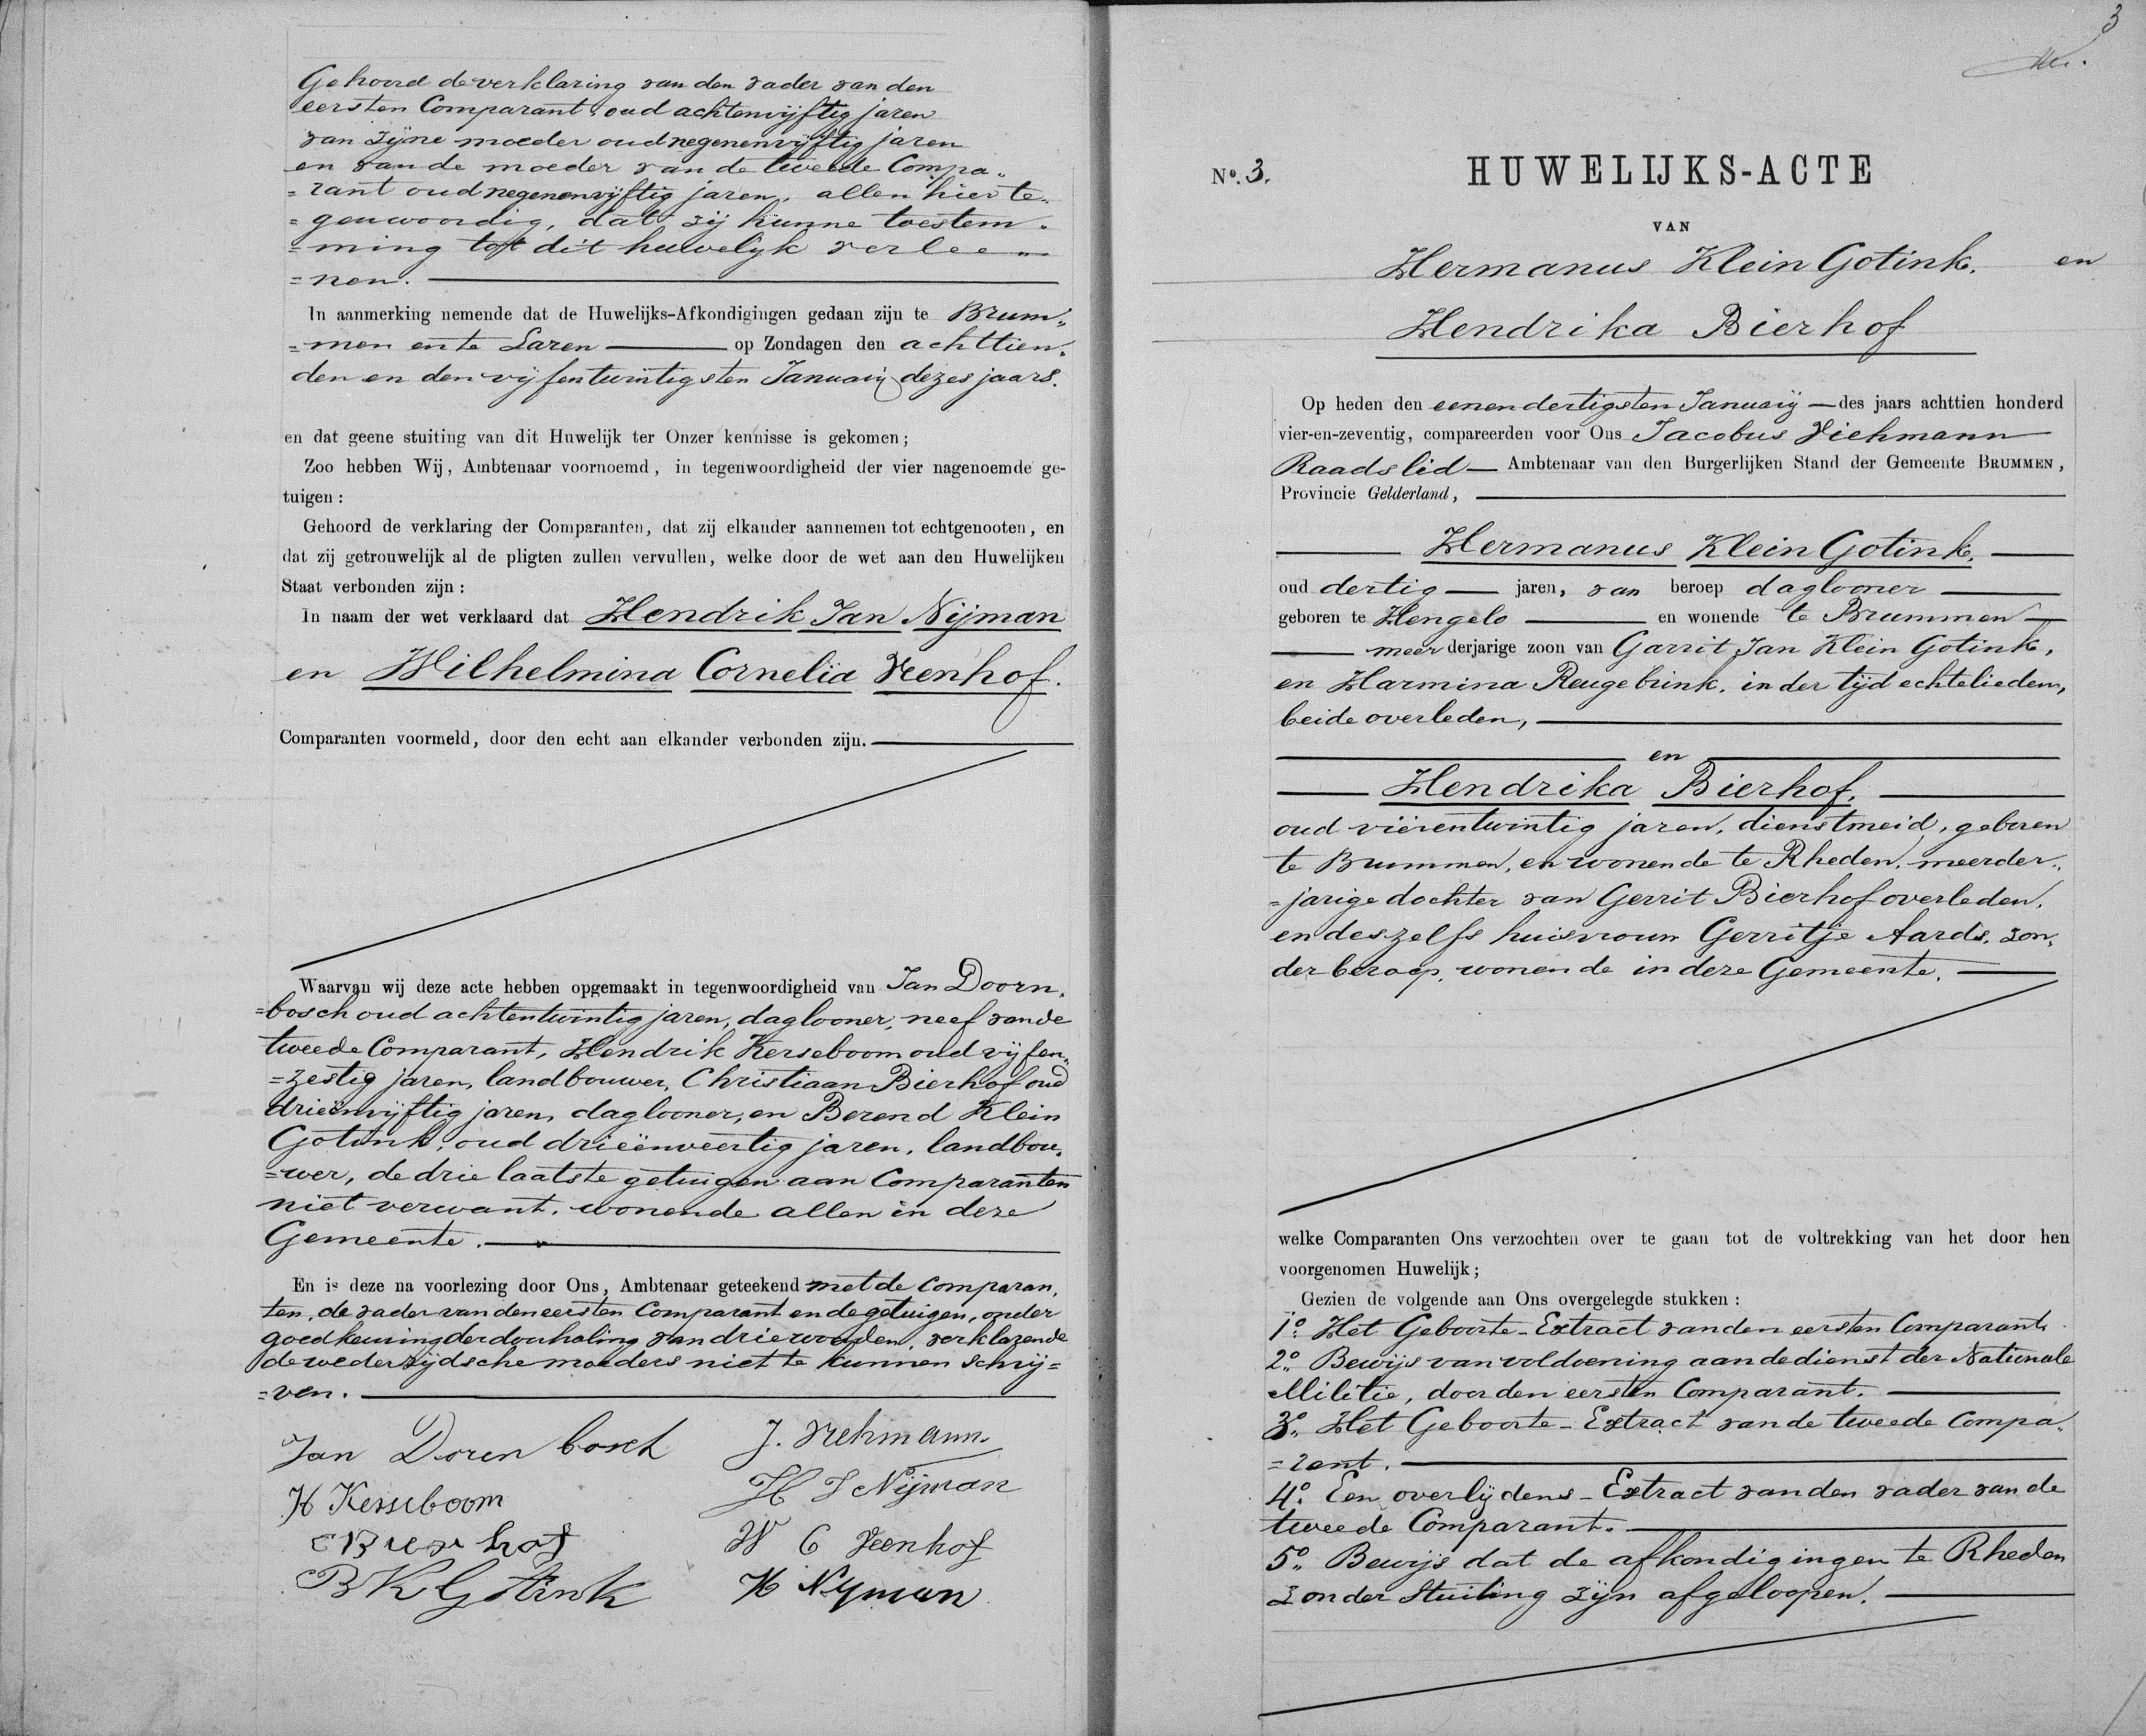 Gehoord de verklaring van den vader van den
eersten Comparant, oud achtenvijftig jaren
van zijne moeder oud negenenvijftig jaren
en van de moeder van de tweede Compa„
=rant oud negenenvijftig jaren, allen hier te„
=genwoordig, dat zij hunne toestem„
=ming tot dit huwelijk verlee„
=nen.
In aanmerking nemende dat de Huwelijks-Afkondigingen gedaan zijn te Brum„
=men en te Laren op Zondagen den achttien„
den en den vijfentwintigsten Januarij dezes jaars.
en dat geene stuiting van dit Huwelijk ter Onzer kennisse is gekomen;
Zoo hebben Wij, Ambtenaar voornoemd, in tegenwoordigheid der vier nagenoemde ge-
tuigen:
Gehoord de verklaring der Comparanten, dat zij elkander aannemen tot echtgenooten, en
dat zij getrouwelijk al de pligten zullen vervullen, welke door de wet aan den Huwelijken
Staat verbonden zijn:
In naam der wet verklaard dat Hendrik Jan Nijman
en Wilhelmina Cornelia Veenhof.
Comparanten voormeld, door den echt aan elkander verbonden zijn.
Waarvan wij deze acte hebben opgemaakt in tegenwoordigheid van Jan Doorn„
=bosch oud achtentwintig jaren, daglooner, neef van de
tweede Comparant, Hendrik Kerseboom oud vijfen„
=zestig jaren, landbouwer, Christiaan Bierhof oud
drieënvijftig jaren, daglooner, en Berend Klein
Gotink, oud drieënveertig jaren, landbou„
=wer, de drie laatste getuigen aan Comparanten
niet verwant, wonende allen in deze
Gemeente.
En is deze na voorlezing door Ons, Ambtenaar geteekend met de Comparan„
ten, de vader van den eersten Comparant en de getuigen, onder
goedkeuring der doorhaling van drie woorden, verklarende
de wederzijdsche moeders niet te kunnen schrij=
=ven.
Jan Doren bosch J. Viehmann
H Kerseboom H J Nijman
C Bierhof W C Veenhof
B K Gotink H Nyman
3
No. 3. HUWELIJKS-ACTE
VAN
Hermanus Klein Gotink, en
Hendrika Bierhof
Op heden den eenendertigsten Januarij des jaars achttien honderd
vier-en-zeventig, compareerden voor Ons Jacobus Viehmann
Raadslid Ambtenaar van den Burgerlijken Stand der Gemeente BRUMMEN,
Provincie Gelderland,
Hermanus Klein Gotink,
oud dertig jaren, van beroep daglooner
geboren te Hengelo en wonende te Brummen
meerderjarige zoon van Garrit Jan Klein Gotink,
en Harmina Reugebrink, in der tijd echtelieden,
beide overleden,
en
Hendrika Bierhof,
oud vierentwintig jaren, dienstmeid, geboren
te Brummen, en wonende te Rheden, meerder„
=jarige dochter van Gerrit Bierhof overleden,
en deszelfs huisvrouw Gerritje Aards, zon„
der beroep, wonende in deze Gemeente.
welke Comparanten Ons verzochten over te gaan tot de voltrekking van het door hen
voorgenomen Huwelijk;
Gezien de volgende aan Ons overgelegde stukken:
1o. Het Geboorte-Extract van den eersten Comparant.
2o. Bewijs van voldoening aan de dienst der Nationale
Militie, door den eersten Comparant.
3o. Het Geboorte-Extract van de tweede Compa„
=rant.
4o. Een overlijdens-Extract van den vader van de
tweede Comparant.
5o. Bewijs dat de afkondigingen te Rheden
zonder stuiting zijn afgeloopen.